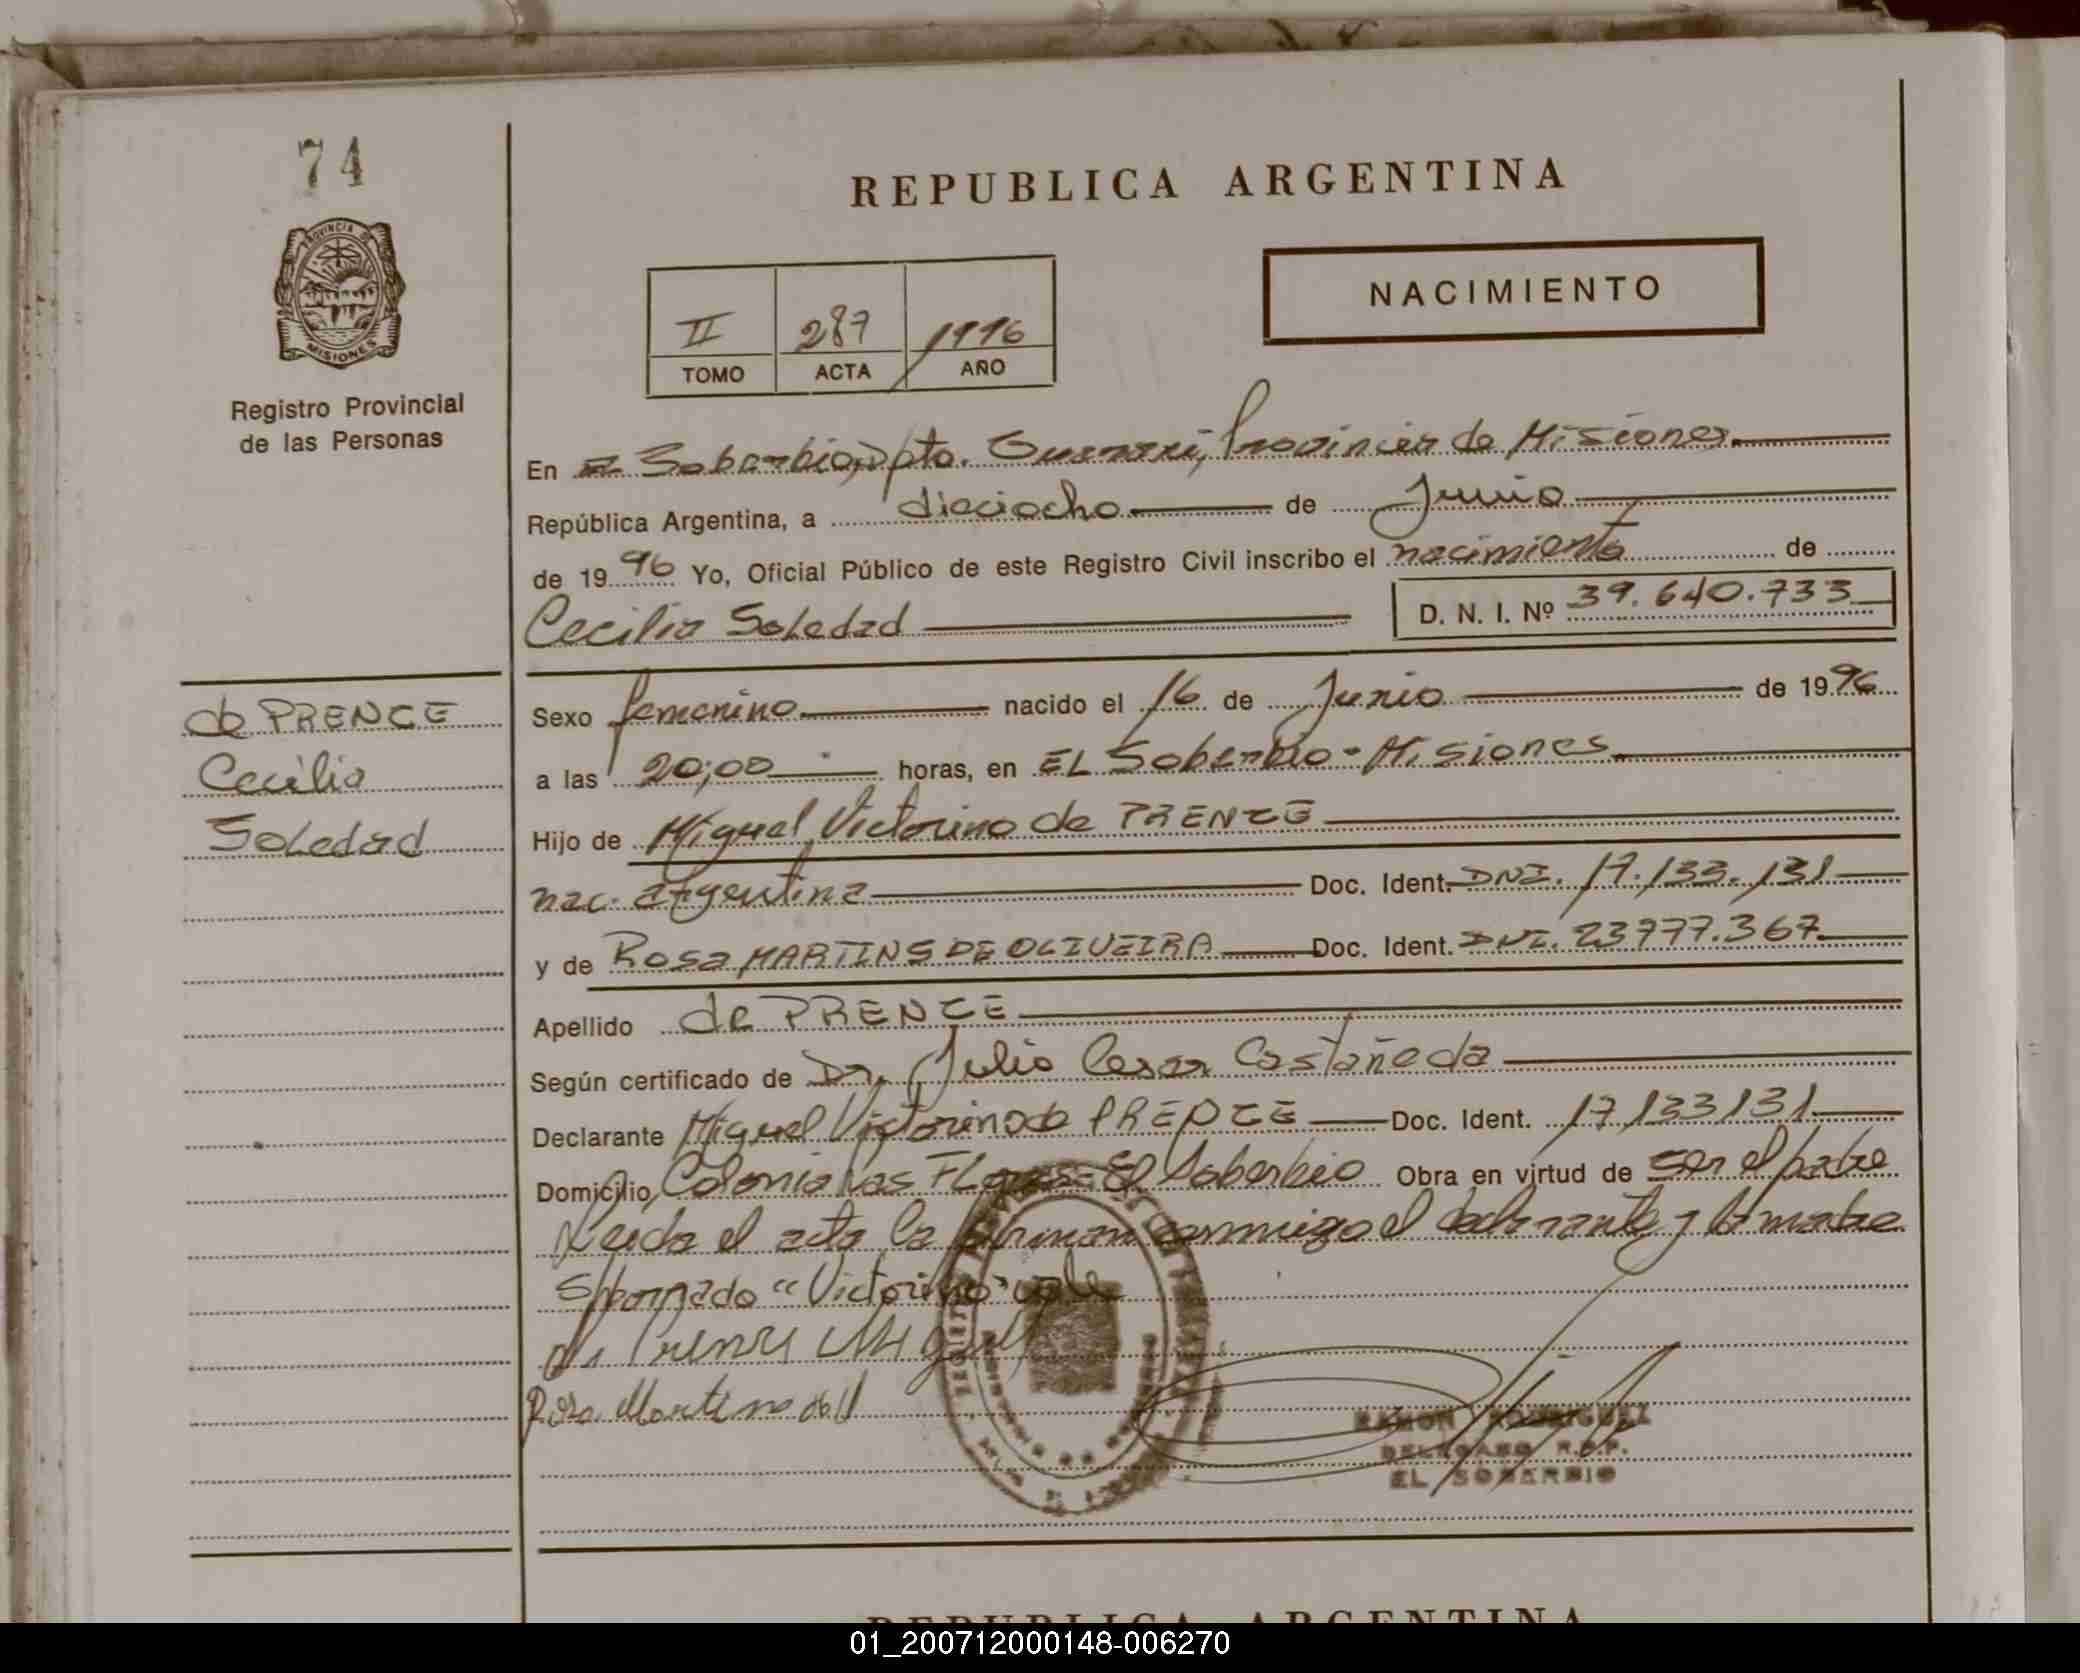 74
REPUBLICA ARGENTINA
PROVINCIA DE
MISIONES
NACIMIENTO
II 287 1996
TOMO ACTA AÑO
Registro Provincial
de las Personas
En El Soberbio, Dpto. Guaraní, Provincia de Misiones
República Argentina, a dieciocho de Junio
de 1996 Yo, Oficial Público de este Registro Civil inscribo el nacimiento de
Cecilia Soledad D. N. I. Nº 39.640.733
de PRENCE
Cecilia
Soledad
Sexo femenino nacido el 16 de Junio de 1996
a las 20,00 horas, en EL Soberbio - Misiones
Hijo de Miguel Victorino de PRENCE
nac. argentina Doc. Ident. DNI. 17.133.131
y de ROSA MARTINS DE OLIVEIRA Doc. Ident. DNI. 23777.367
Apellido de PRENCE
Según certificado de Dr. Julio Cesar Castañeda
Declarante Miguel Victorino de PRENCE Doc. Ident. 17.133131
Domicilio Colonia Las Flores - El Soberbio Obra en virtud de ser el padre
Leida el acta la firman conmigo el declarante y la madre
S/borrado "Victorino" vale
de Prence Miguel
Rosa Martins de
RAMON RODRIGUEZ
DELEGADO R.P.P.
EL SOBERBIO
REPUBLICA ARGENTINA
01_200712000148-006270